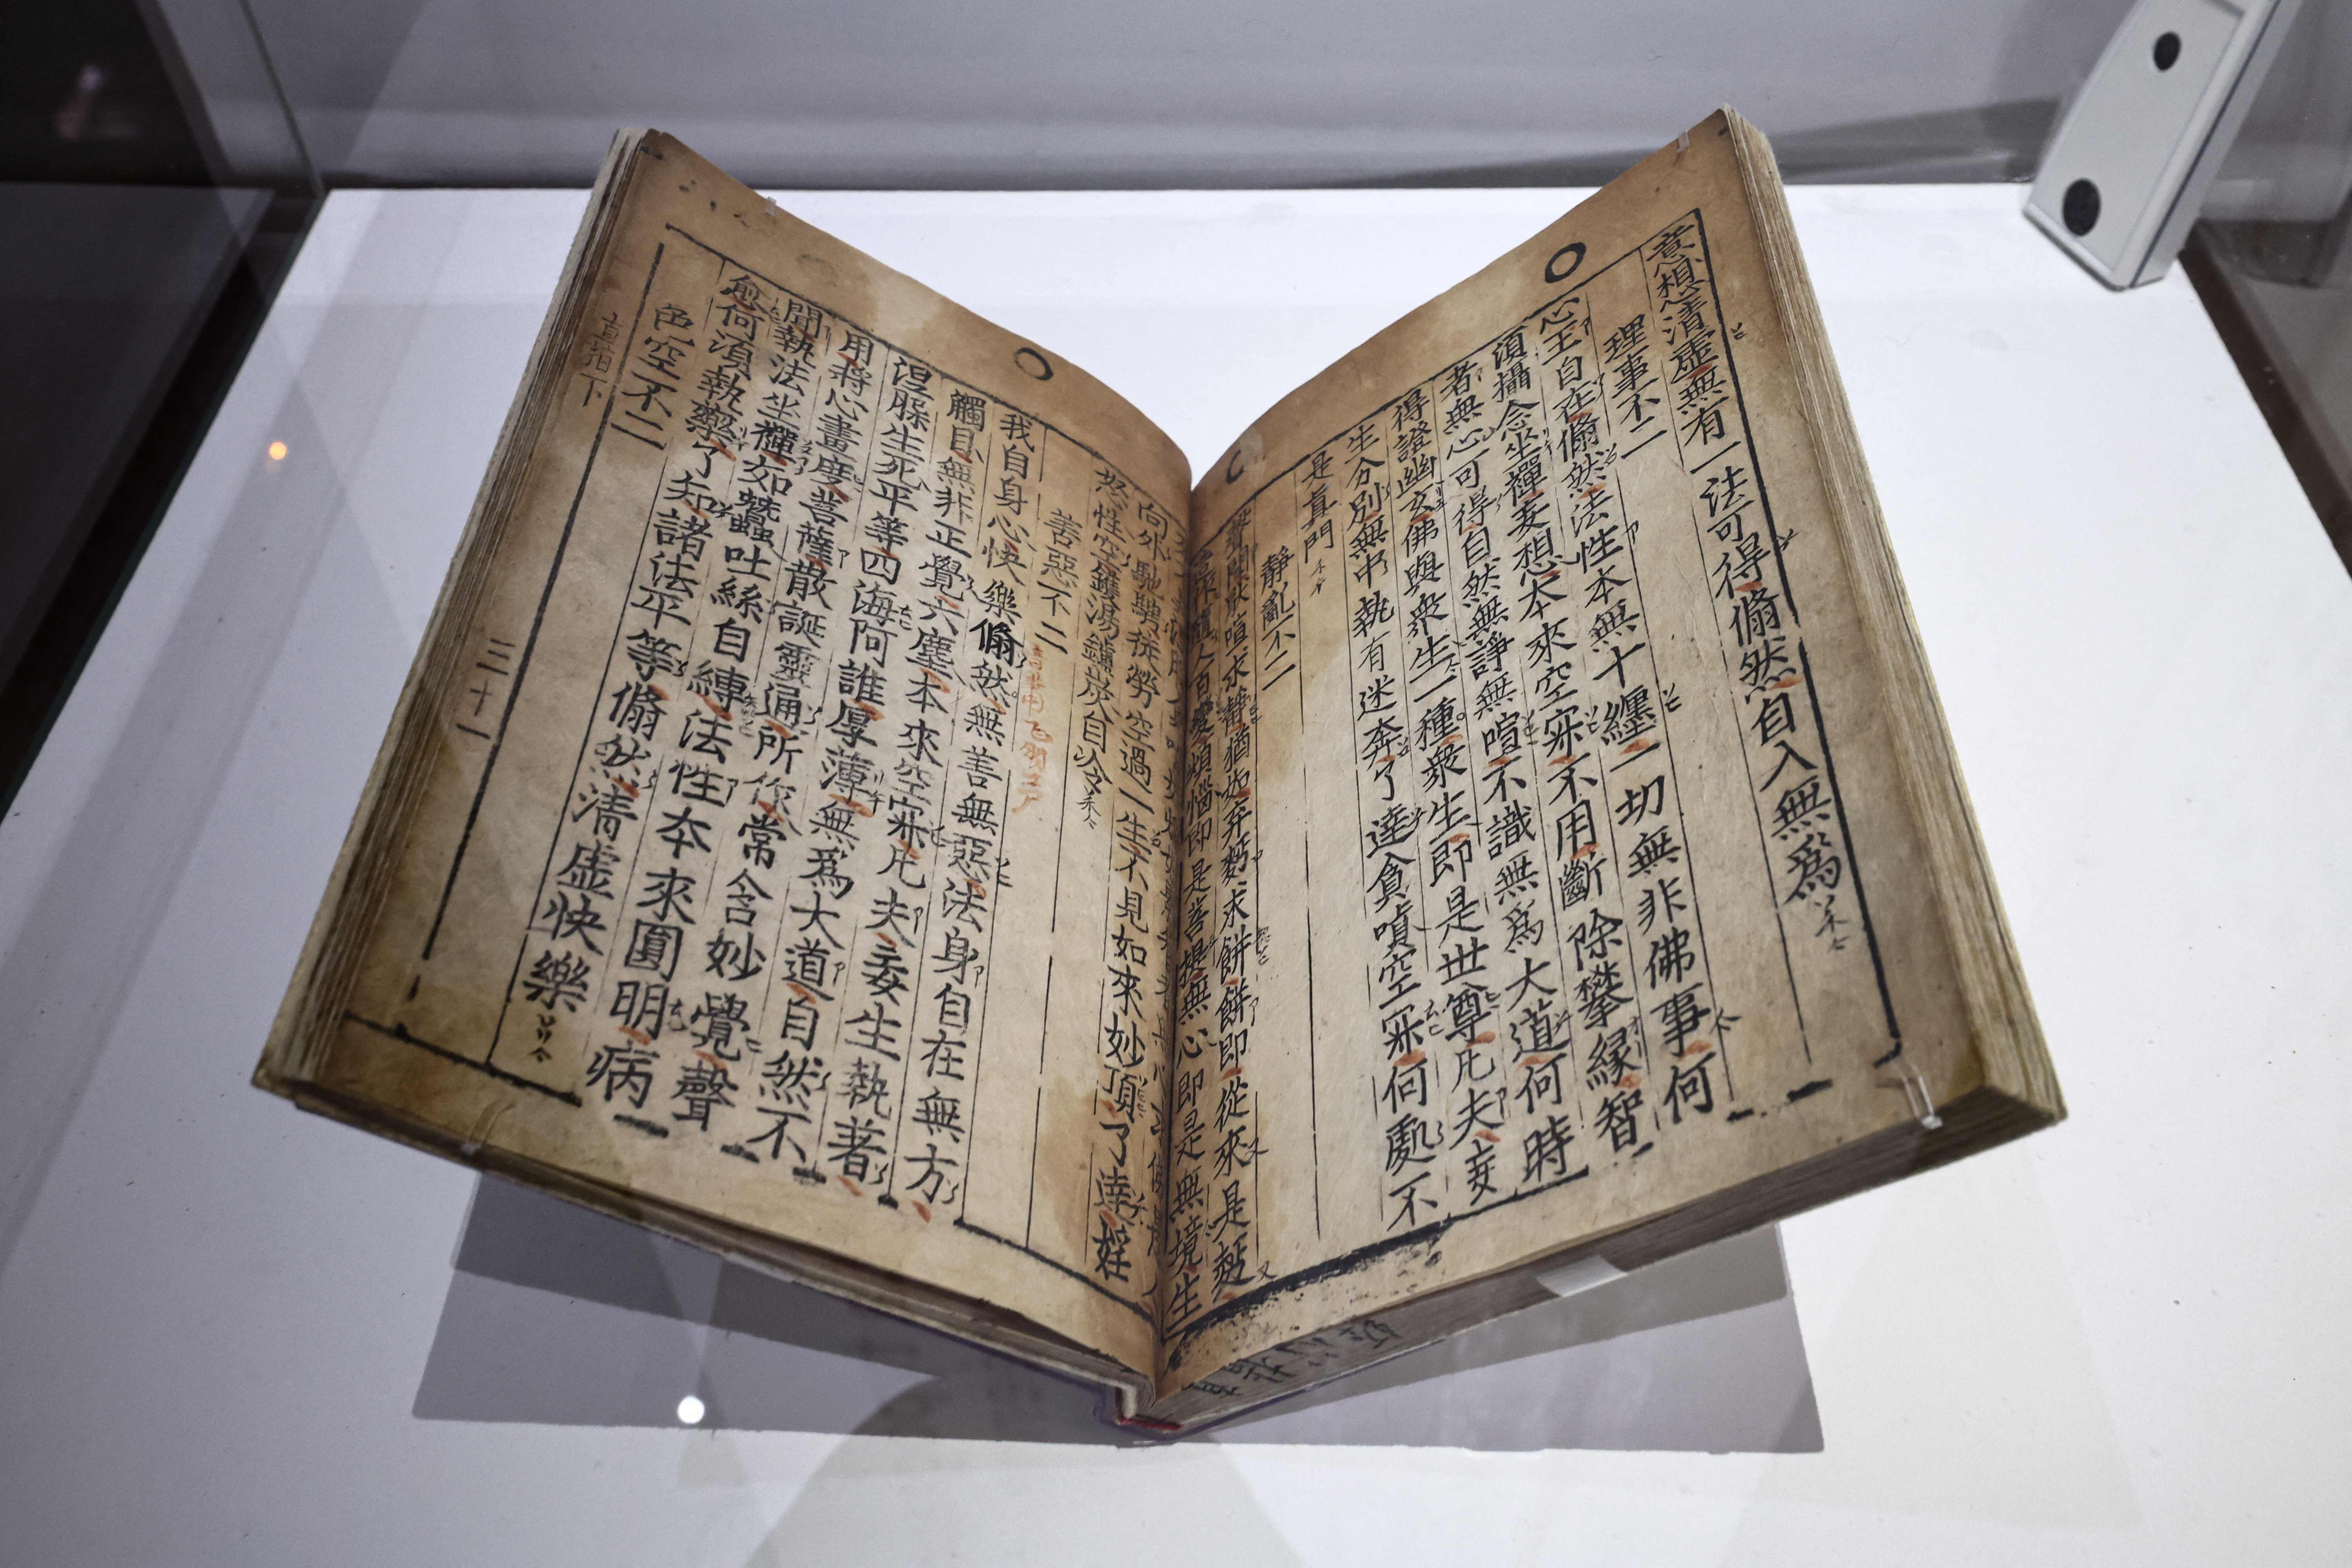 意想清虛無有一法可得翛然自入無爲
理事不二
心王自在翛然法性本無十纏一切無非佛事何
須攝念坐禪妄想本來空寂不用斷除攀緣智
者無心可得自然無諍無喧不識無爲大道何時
得證幽玄佛與衆生一種衆生即是世尊凡夫妄
生分別無中執有迷奔了達貪嗔空寂何處不
是真門
靜亂不二
聲聞厭喧求靜猶如弃麪求餅餅即從來是麪
人百變煩惱即是菩提無心即是無境生
向外馳騁徒勞空過一生不見如來妙頂了達婬
慾性空鑊湯鑪炭自冷
善惡不二
我自身心快樂翛然無善無惡法身自在無方
觸目無非正覺六塵本來空寂凡夫妄生執著
涅槃生死平等四海阿誰厚薄無爲大道自然不
用將心畫度菩薩散誕靈通所作常含妙覺聲
聞執法坐禪如蠶吐絲自縛法性本來圓明病
愈何須執藥了知諸法平等翛然清虛快樂
色空不二
直指下 三十一